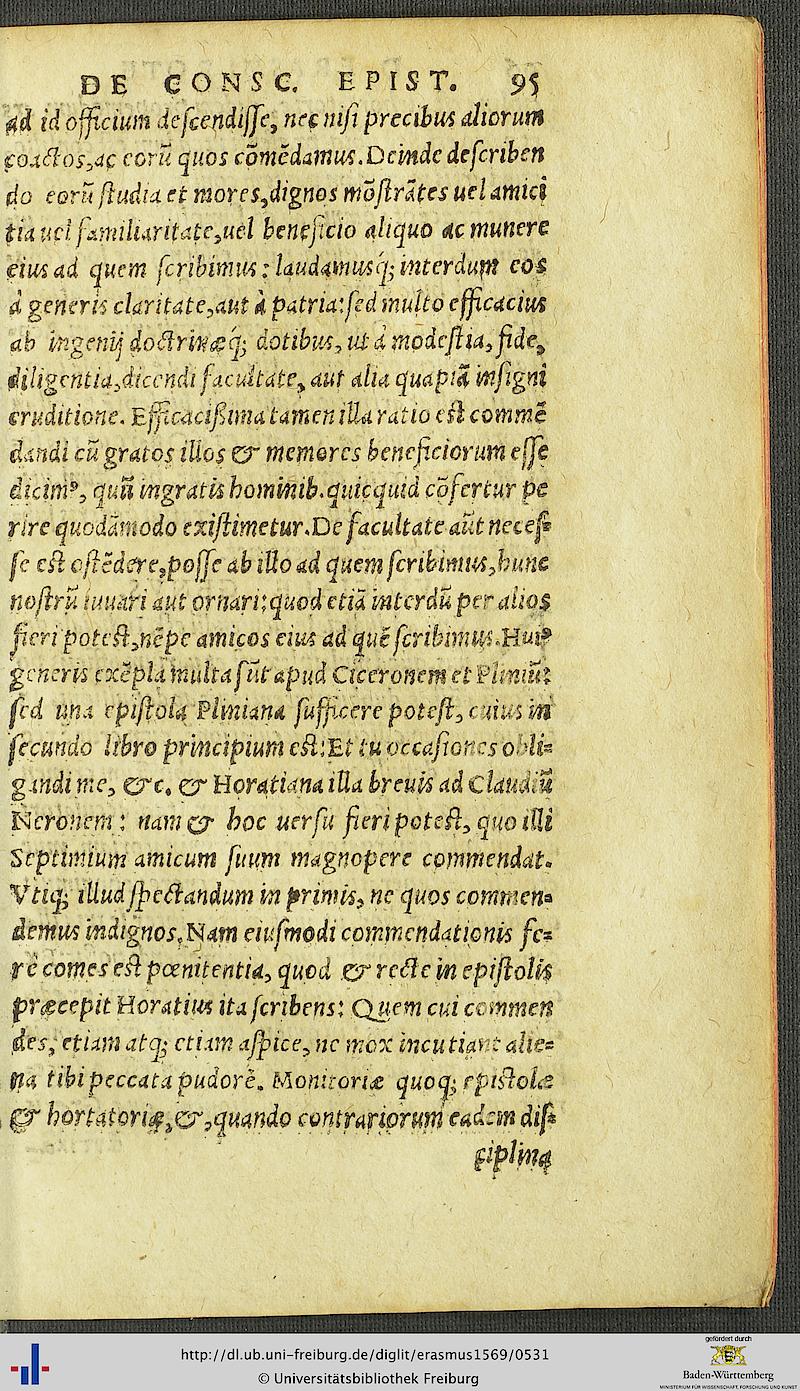 DE CONSC. EPIST. 95
ad id officium deſcendiſſe, nec niſi precibus aliorum
coactos, ac eorũ quos cõmẽdamus. Deinde deſcriben
do eorũ ſtudia et mores, dignos mõſtrãtes uel amici
tia uel familiaritate, uel beneficio aliquo ac munere
eius ad quem ſcribimus: laudamusq́; interdum eos
à generis claritate, aut à patria: ſed multo efficacius
ab ingenij doctrinæq́; dotibus, ut à modeſtia, fide,
diligentia, dicendi facultate, aut alia quapiã inſigni
eruditione. Efficacißima tamen illa ratio eſt commẽ
dandi cũ gratos illos & memores beneficiorum eſſe
dicimꝰ, quũ ingratis hominib. quicquid cõfertur pe
rire quodãmodo exiſtimetur. De facultate aũt neceſ⸗
ſe eſt oſtẽdere, poſſe ab illo ad quem ſcribimus, hunc
noſtrũ iuuari aut ornari: quod etiã interdũ per alios
fieri poteſt, nẽpe amicos eius ad quẽ ſcribimus. Huiꝰ
generis exẽpla multa ſũt apud Ciceronem et Pliniũ:
ſed una epiſtola Pliniana ſufficere poteſt, cuius in
ſecundo libro principium eſt: Et tu occaſiones obli⸗
gandi me, &c. & Horatiana illa breuis ad Claudiũ
Neronem: nam & hoc uerſu fieri poteſt, quo illi
Septimium amicum ſuum magnopere commendat.
Vtiq; illud ſpectandum in primis, ne quos commen⸗
demus indignos. Nam eiuſmodi commendationis fe⸗
rè comes eſt pœnitentia, quod & recte in epiſtolis
præcepit Horatius ita ſcribens: Quem cui commen
des, etiam atq; etiam aſpice, ne mox incutiant alie⸗
na tibi peccata pudorẽ. Monitoriæ quoq; epiſtolæ
& hortatoriæ, &, quando contrariorum eadem diſ⸗
ciplina
http://dl.ub.uni-freiburg.de/diglit/erasmus1569/0531
© Universitätsbibliothek Freiburg
gefördert durch
Baden-Württemberg
MINISTERIUM FÜR WISSENSCHAFT, FORSCHUNG UND KUNST